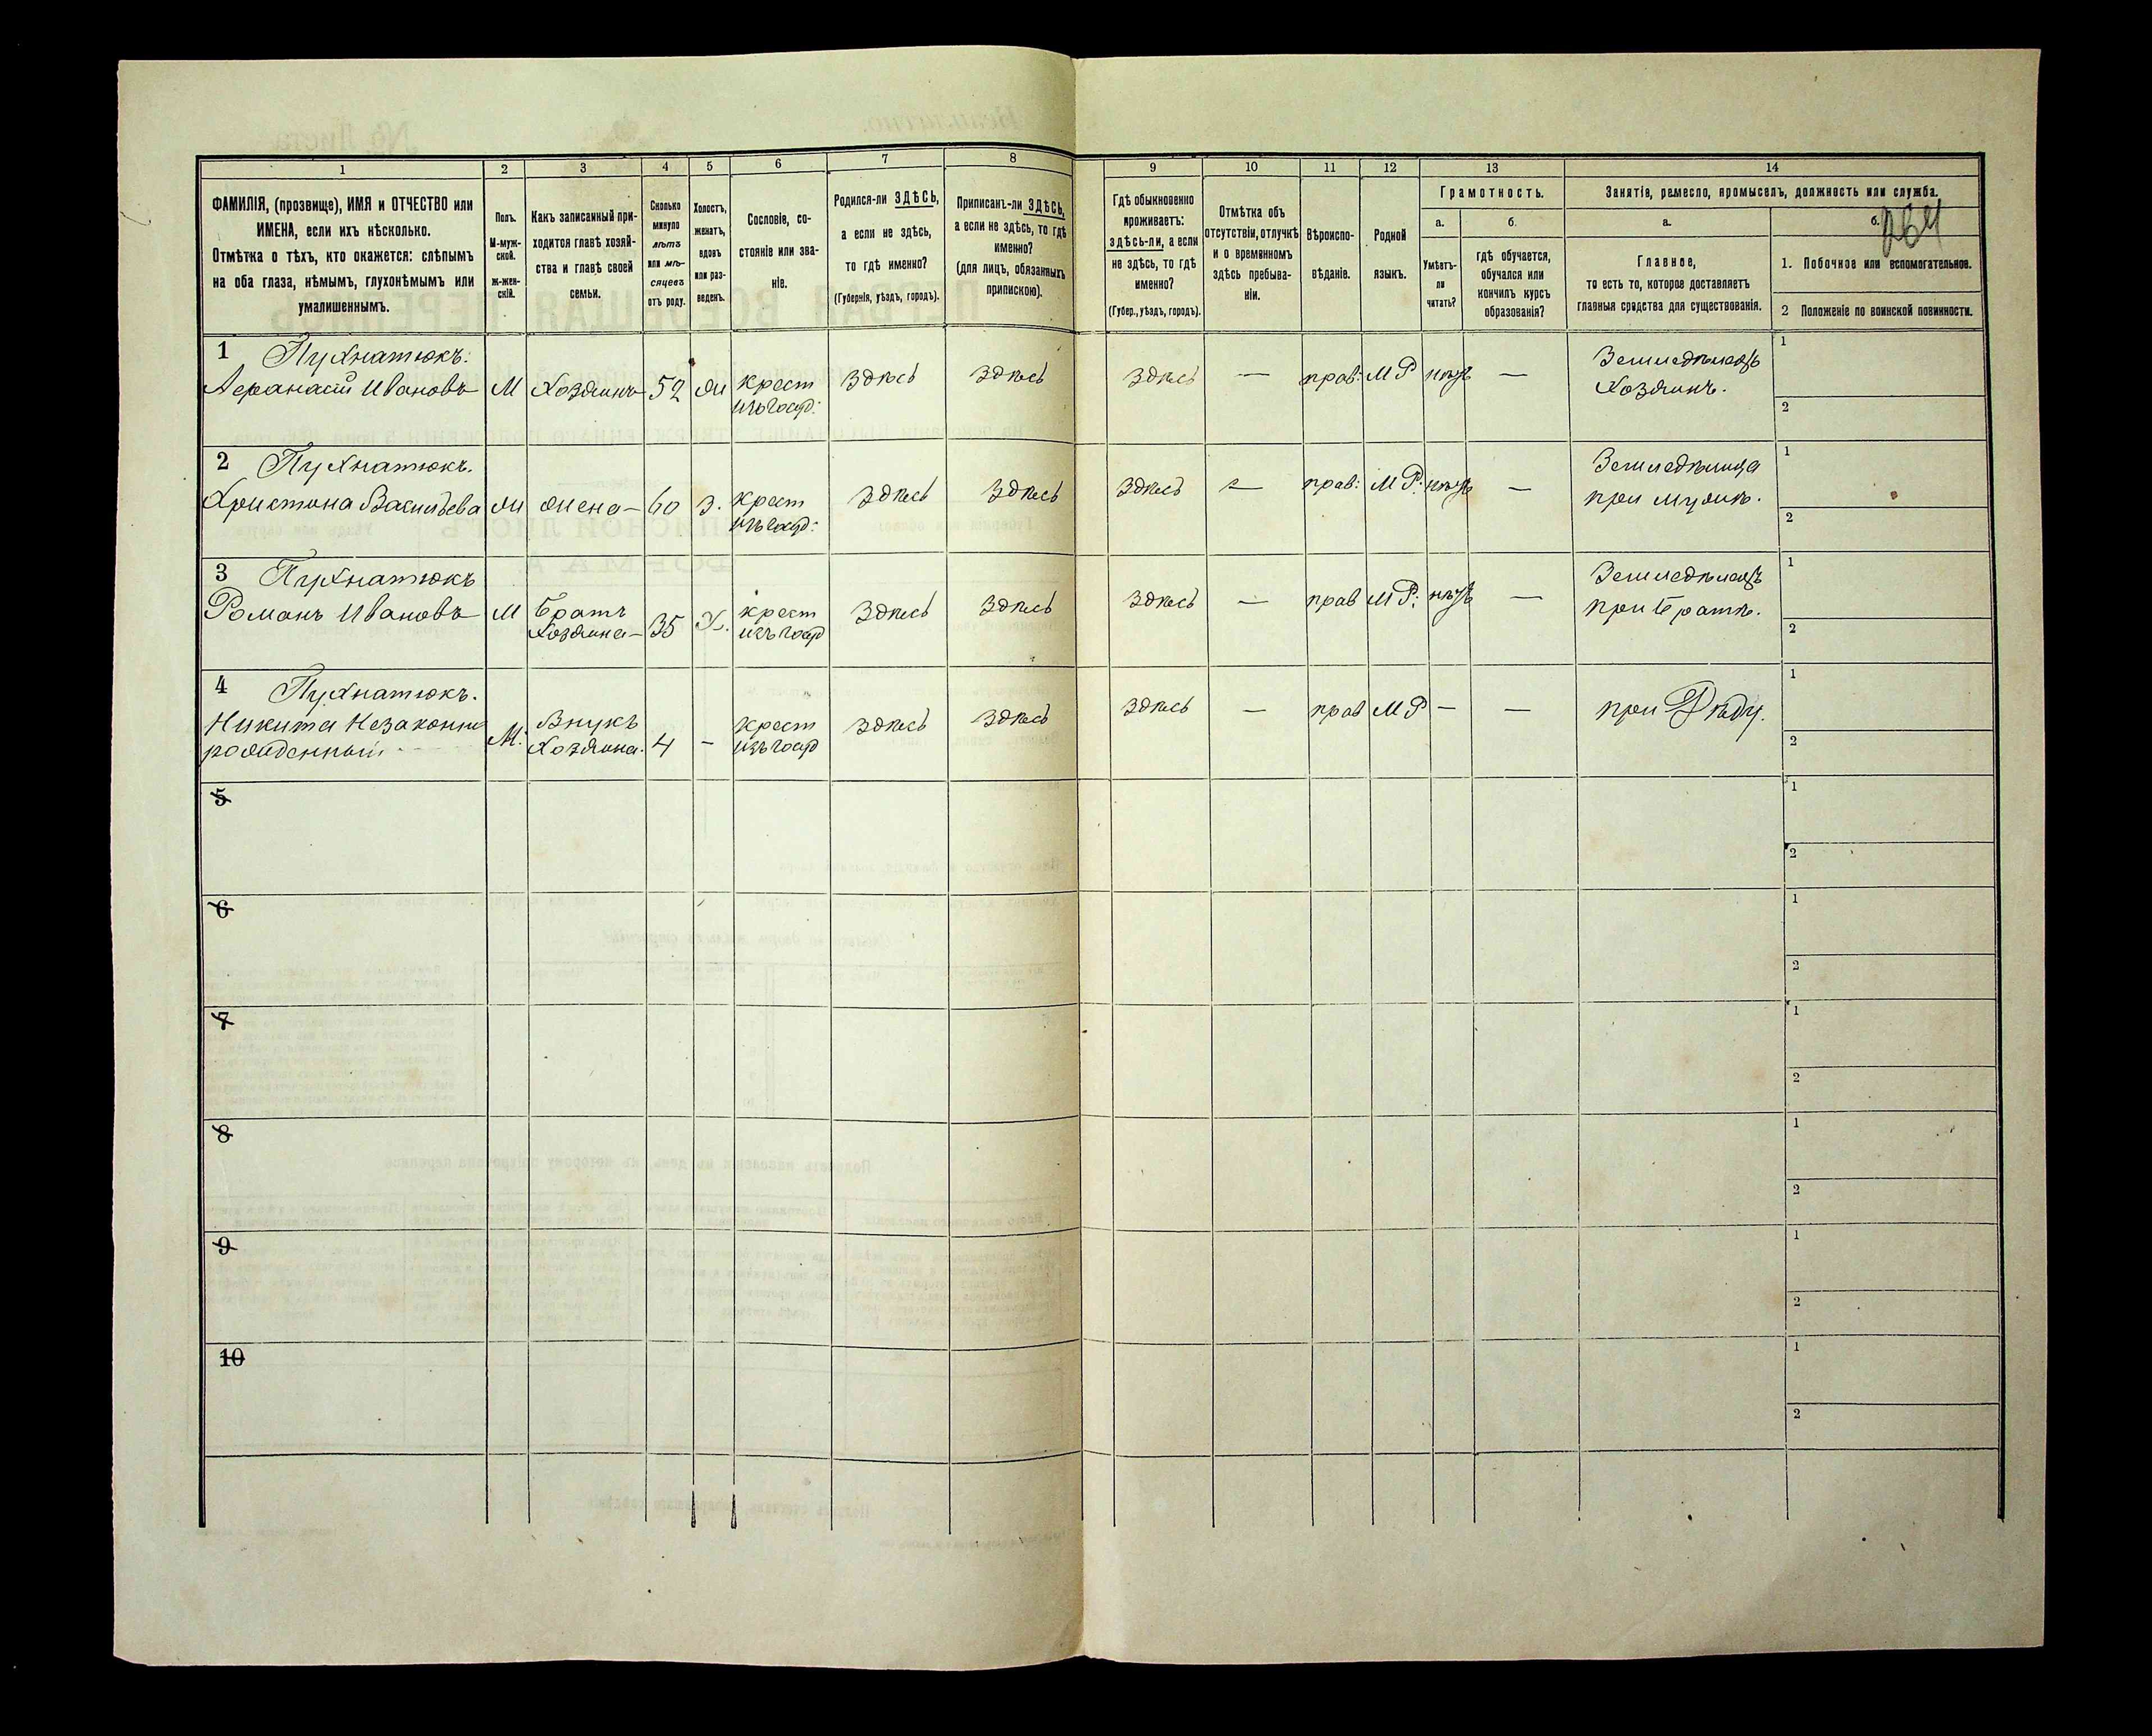 1 2 3 4 5 6 7 8 9 10 11 12 13 14
ФАМИЛІЯ, (прозвище), ИМЯ и ОТЧЕСТВО или
ИМЕНА, если ихъ нѣсколько.
Отмѣтка о тѣхъ, кто окажется: слѣпымъ
на оба глаза, нѣмымъ, глухонѣмымъ или
умалишеннымъ.
Полъ.
М-муж-
ской.
ж-жен-
скій.
Какъ записанный при-
ходится главѣ хозяй-
ства и главѣ своей
семьи.
Сколько
минуло
лѣтъ
или мѣ-
сяцевъ
отъ роду.
Холостъ,
женатъ,
вдовъ
или раз-
веденъ.
Сословіе, со-
стояніе или зва-
ніе.
Родился-ли ЗДѢСЬ,
а если не здѣсь,
то гдѣ именно?
(Губернія, уѣздъ, городъ).
Приписанъ-ли ЗДѢСЬ,
а если не здѣсь, то гдѣ
именно?
(для лицъ, обязанныхъ
припискою).
Гдѣ обыкновенно
проживаетъ:
здѣсь-ли, а если
не здѣсь, то гдѣ
именно?
(Губер., уѣздъ, городъ).
Отмѣтка объ
отсутствіи, отлучкѣ
и о временномъ
здѣсь пребыва-
ніи.
Вѣроиспо-
вѣданіе.
Родной
языкъ.
Грамотность.
а.
Умѣетъ-
ли
читать?
б.
гдѣ обучается,
обучался или
кончилъ курсъ
образованія?
Занятіе, ремесло, промыселъ, должность или служба.
а.
Главное,
то есть то, которое доставляетъ
главныя средства для существованія.
б.
264
1. Побочное или вспомогательное.
2 Положеніе по воинской повинности.
1 Пухнатюкъ.
Афанасій Ивановъ М Хозяинъ 52 Ж крест здѣсь здѣсь здѣсь — прав: МР нѣтъ — Земледѣлецъ
изъ госуд: Хозяинъ.
1
2
2 Пухнатюкъ.
Христина Васильева Ж жена — 60 З. крест здѣсь здѣсь здѣсь — прав: МР: нѣтъ — Земледѣлица
изъ госуд: при мужѣ.
1
2
3 Пухнатюкъ
Романъ Ивановъ М Братъ 35 Х. крест здѣсь здѣсь здѣсь — прав МР: нѣтъ — Земледѣлецъ
Хозяина — изъ госуд при братѣ.
1
2
4 Пухнатюкъ.
Никита Незаконно М. Внукъ 4 – крест здѣсь здѣсь здѣсь — прав МР — — при Дѣду.
рожденный Хозяина. изъ госуд
1
2
5
1
2
6
1
2
7
1
2
8
1
2
9
1
2
10
1
2